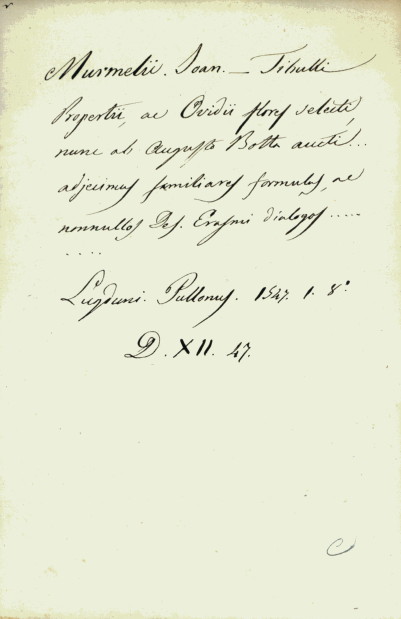 Murmelii. Joan. — Tibulli
Propertii, ac Ovidii flores selecti,
nunc ab Augusto Botta aucti...
adjecimus familiares formulas, ac
nonnullos Des. Erasmi dialogos .....
....
Lugduni. Pullonus. 1547. 1. 8.°
D. XII. 47.